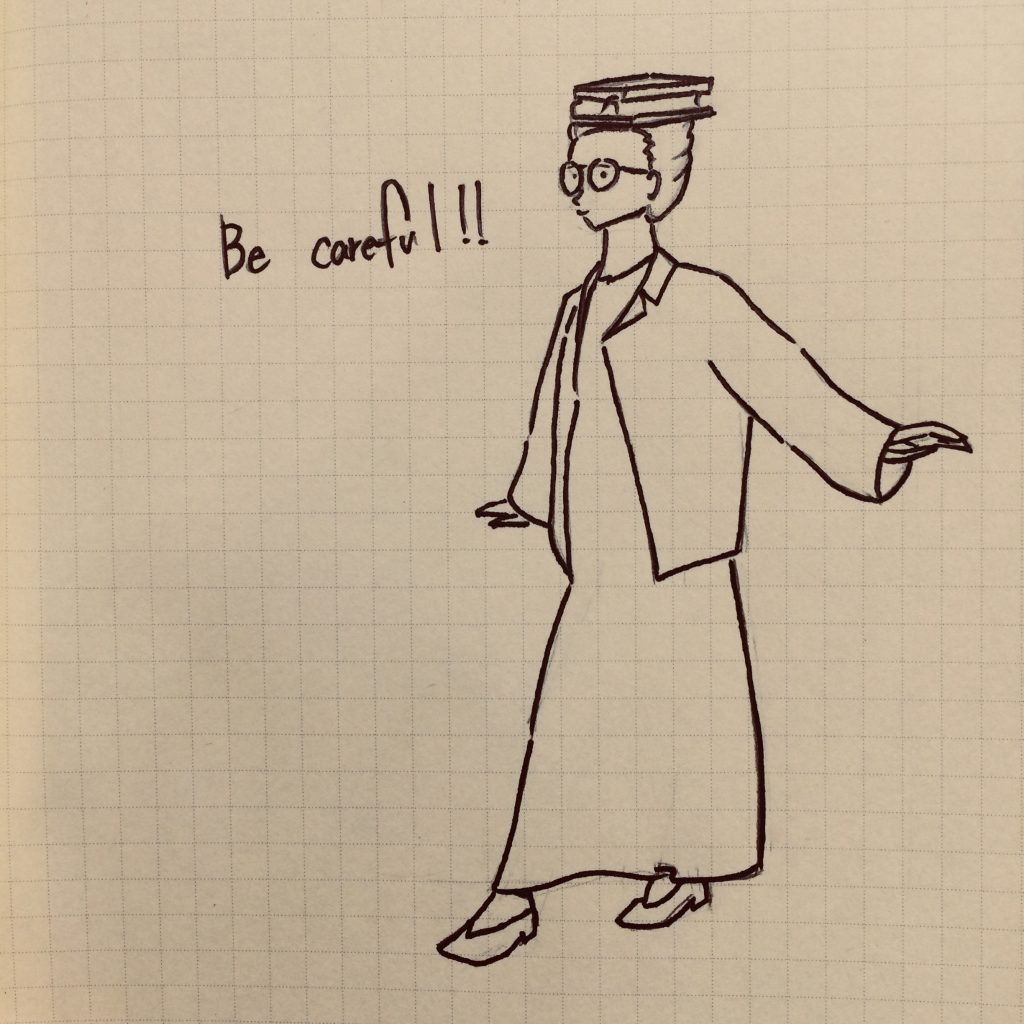 Be careful!!